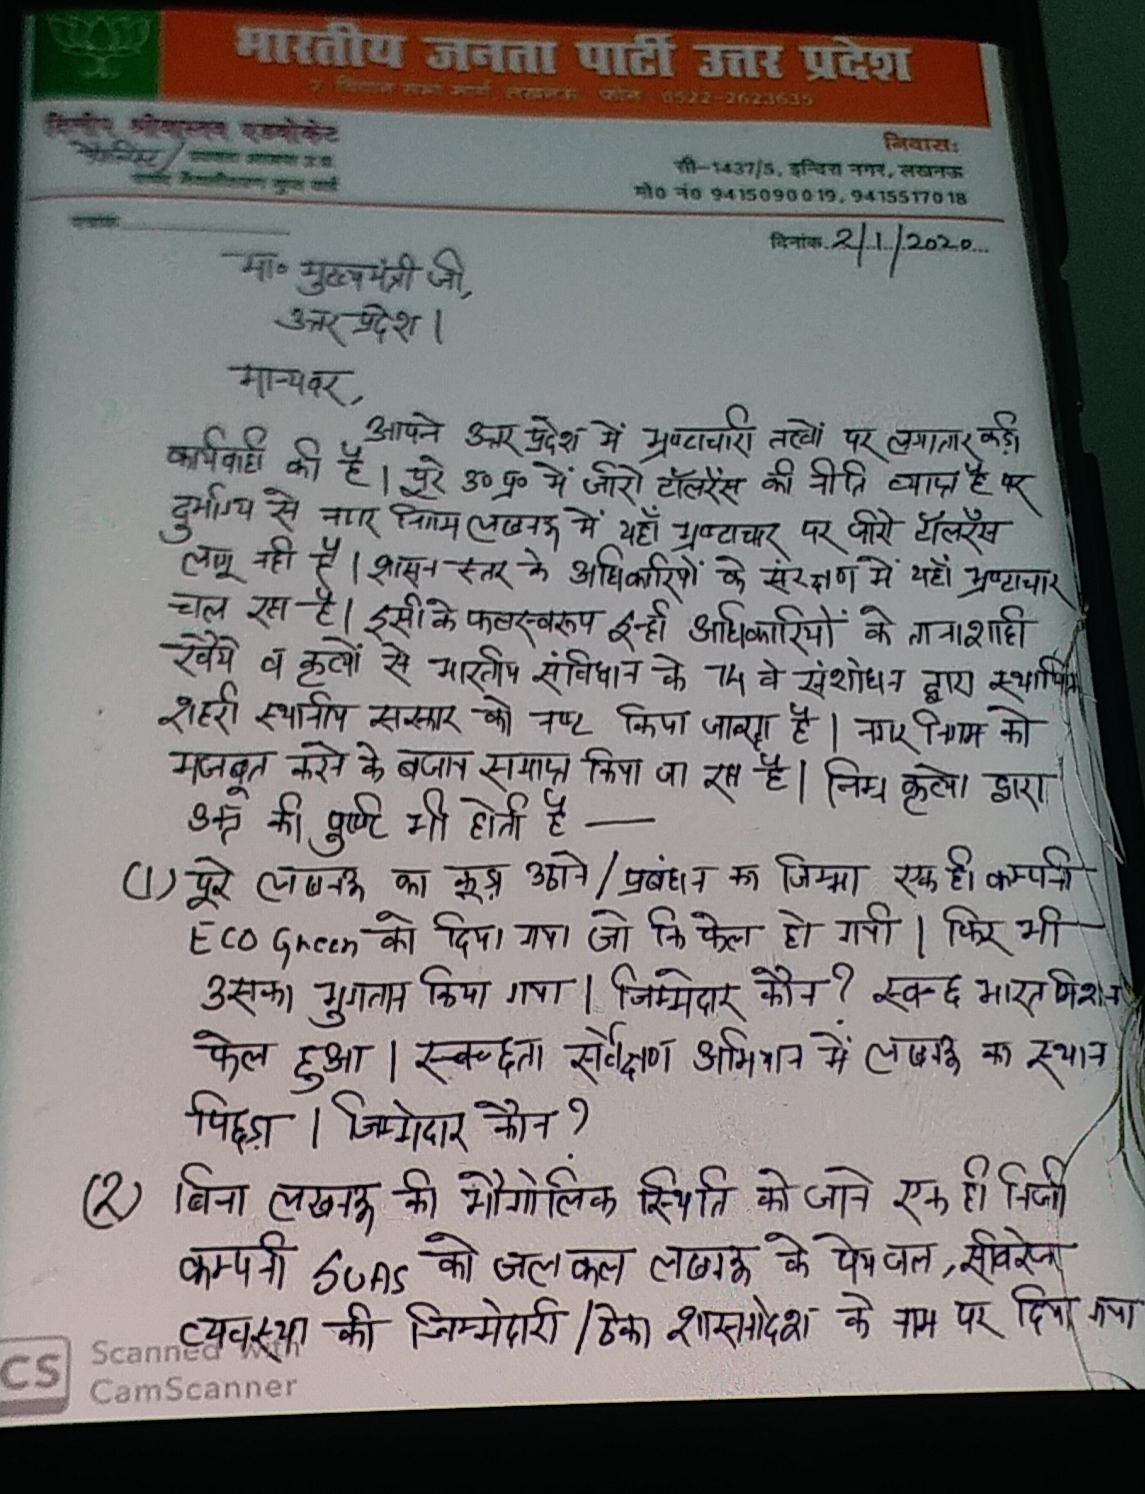 भारतीय जनता पार्टी उत्तर प्रदेश
7, विधान सभा मार्ग, लखनऊ, फोन : 0522-2623635
दिलीप श्रीवास्तव एडवोकेट
निवास:
सी-1437/5, इन्दिरा नगर, लखनऊ
मो0 नं0 9415090019, 9415517018
दिनांक 2/1/2020
मा० मुख्यमंत्री जी,
उत्तर प्रदेश।
मान्यवर,
आपने उत्तर प्रदेश में भ्रष्टाचारी तत्वों पर लगातार कड़ी
कार्यवाही की है। पूरे उ० प्र० में जीरो टॉलरेंस की नीति व्याप्त है पर
दुर्भाग्य से नगर निगम लखनऊ में यहाँ भ्रष्टाचार पर जीरो टॉलरेंस
लागू नही है। शासन स्तर के अधिकारियों के संरक्षण में यहाँ भ्रष्टाचार
चल रहा है। इसी के फलस्वरूप इन्ही अधिकारियों के तानाशाही
रवैये व कृत्यों से भारतीय संविधान के 74 वे संशोधन द्वारा स्थापित
शहरी स्थानीय सरकार को नष्ट किया जा रहा है। नगर निगम को
मजबूत करने के बजाय समाप्त किया जा रहा है। निम्न कृत्यो द्वारा
उक्त की पुष्टि भी होती है —
(1) पूरे लखनऊ का कूड़ा उठाने/प्रबंधन का जिम्मा एक ही कम्पनी
ECO Green को दिया गया जो कि फेल हो गयी। फिर भी
उसका भुगतान किया गया। जिम्मेदार कौन? स्वच्छ भारत मिशन
फेल हुआ। स्वच्छता सर्वेक्षण अभियान में लखनऊ का स्थान
पिछड़ा। जिम्मेदार कौन?
(2) बिना लखनऊ की भौगोलिक स्थिति को जाने एक ही निजी
कम्पनी SUAS को जलकल लखनऊ के पेयजल, सीवरेज
व्यवस्था की जिम्मेदारी/ठेका शासनादेश के नाम पर दिया गया
CS Scanned with
CamScanner